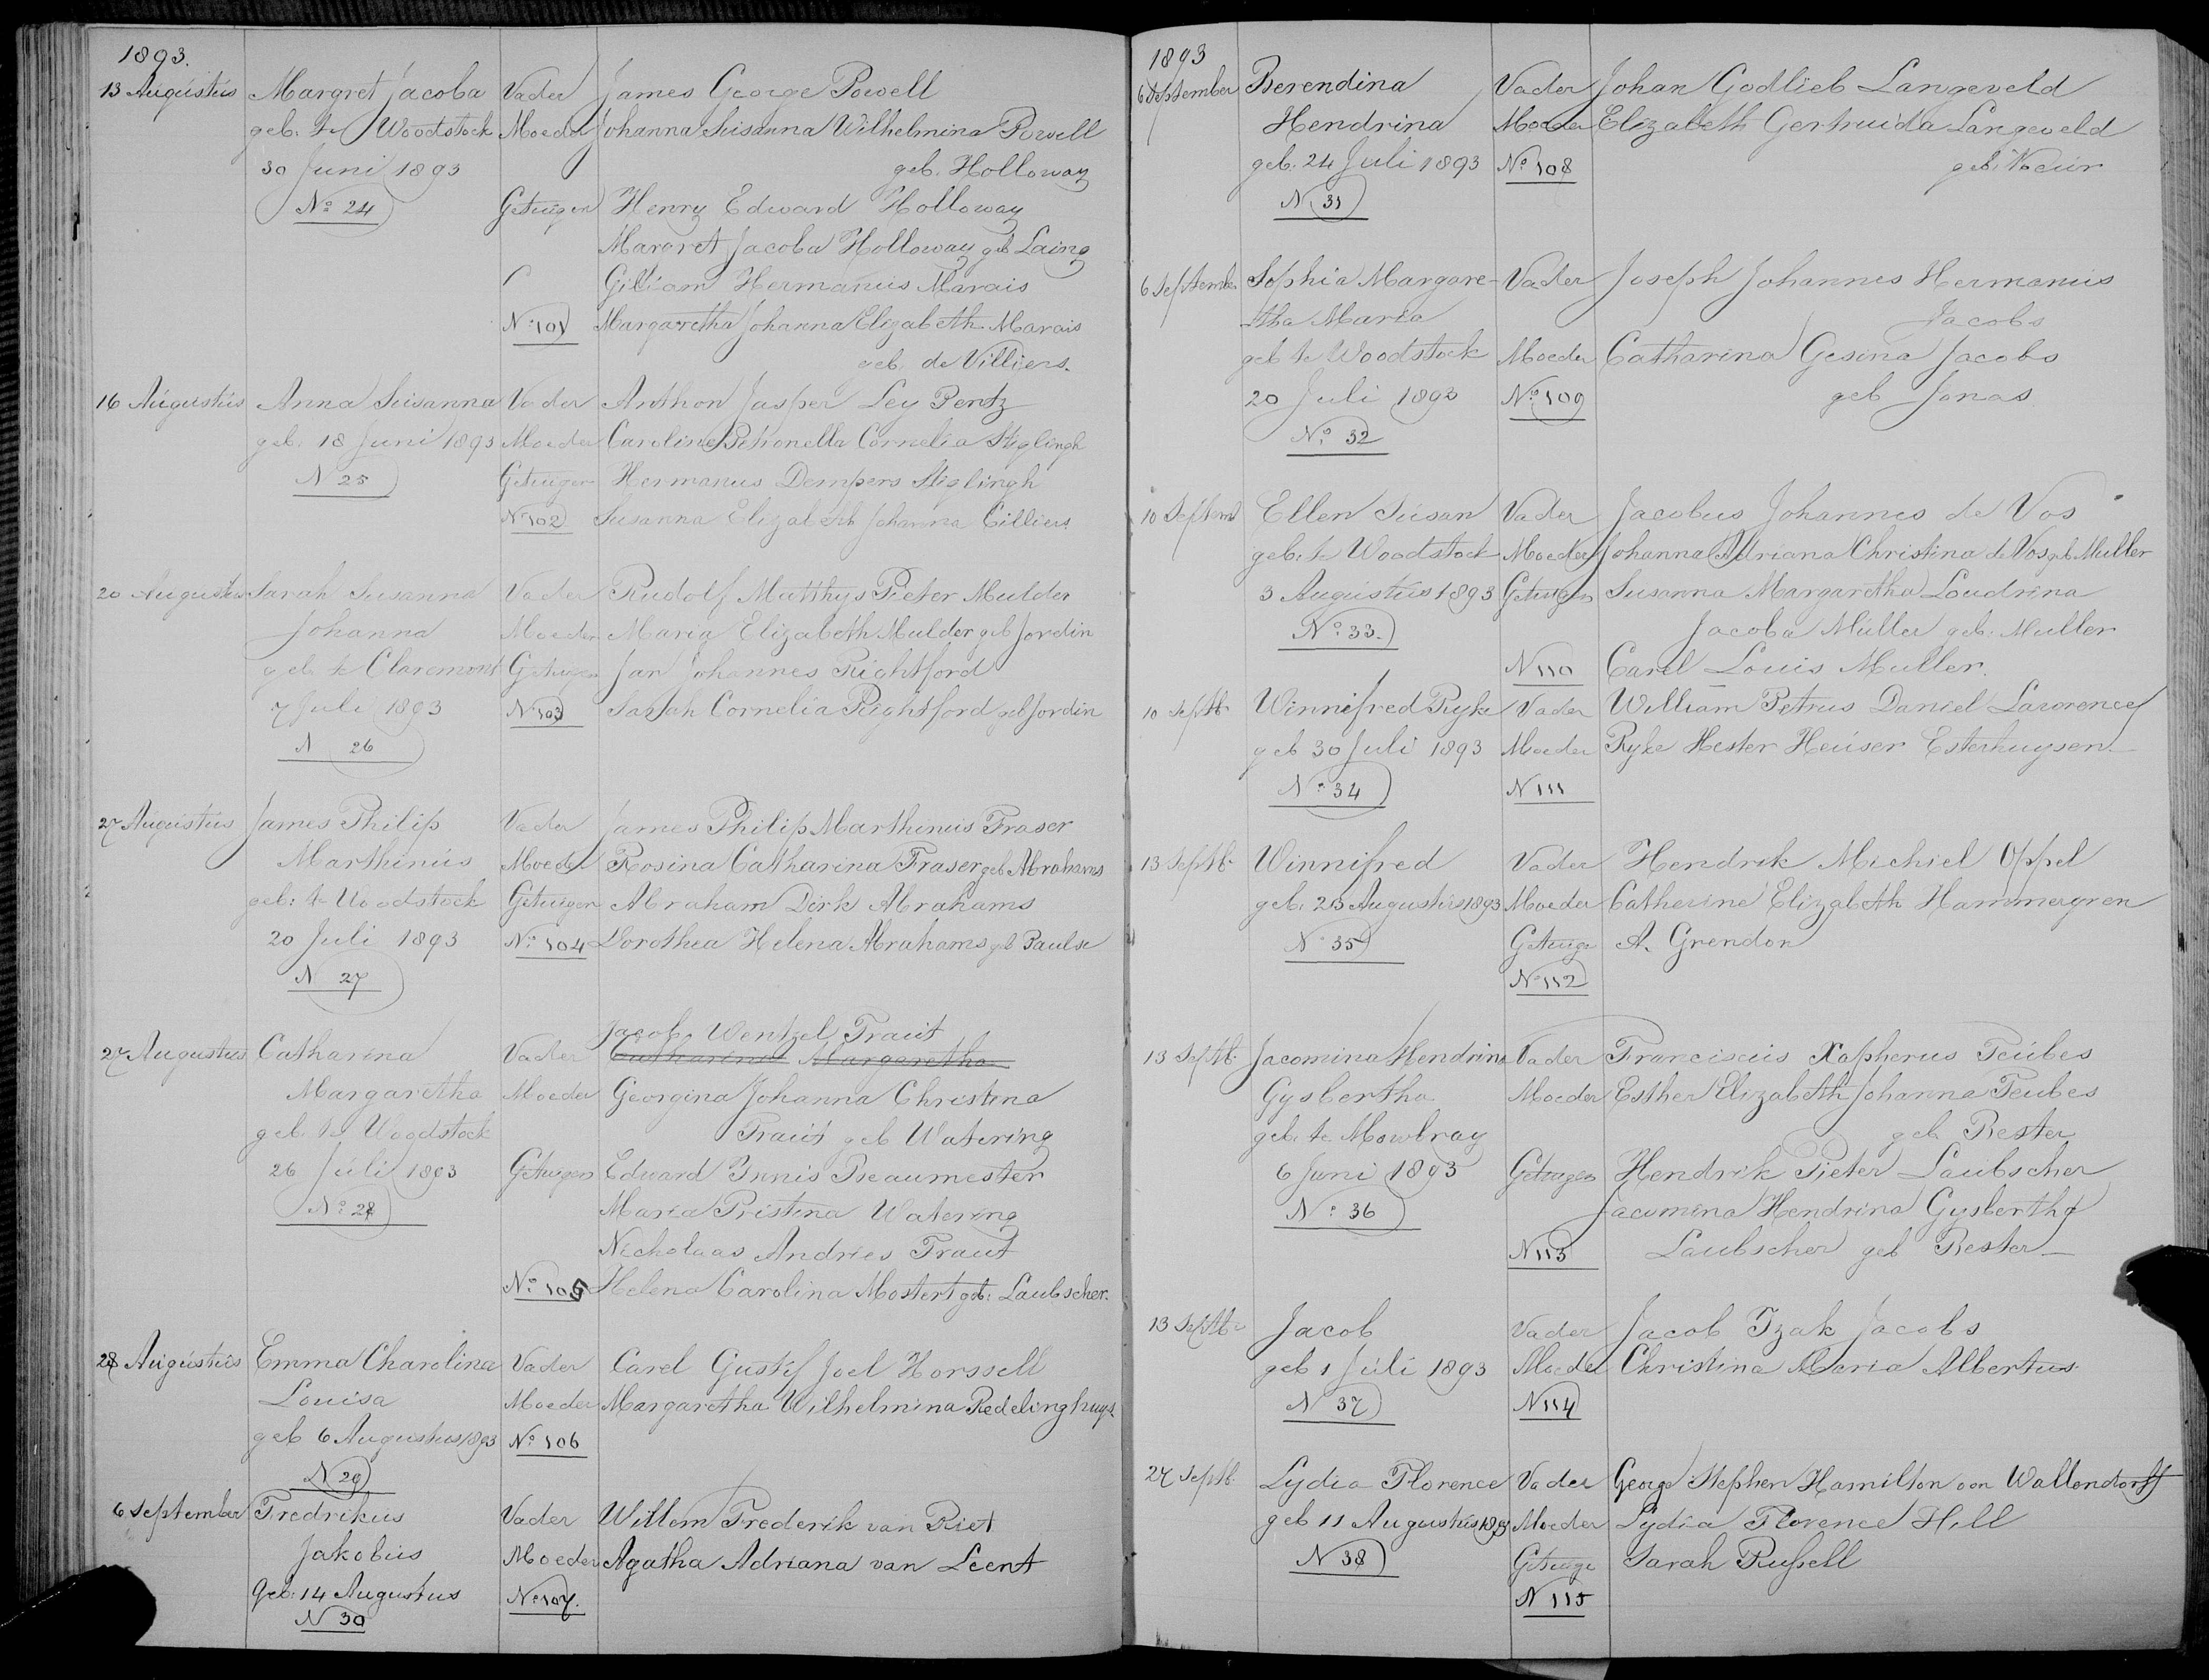 1893.
13 Augustus Margret Jacoba Vader James George Powell
geb. te Woodstock Moeder Johanna Susanna Wilhelmina Powell
30 Juni 1893 geb. Holloway
No 24 Getuigen Henry Edward Holloway
Margret Jacoba Holloway geb Laing
Gilliam Hermanus Marais
No 101 Margaretha Johanna Elizabeth Marais
geb. de Villiers.
16 Augustus Anna Susanna Vader Anthon Jasper Ley Pentz
geb. 18 Juni 1893 Moeder Caroline Petronella Cornelia Stiglingh
N 25 Getuigen Hermanus Dempers Stiglingh
No 102 Susanna Elizabeth Johanna Cilliers
20 Augustus Sarah Susanna Vader Rudolf Matthys Pieter Mulder
Johanna Moeder Maria Elizabeth Mulder geb Jordin
geb te Claremont Getuigen Jan Johannes Rightford
7 Juli 1893 No 103 Sarah Cornelia Rightford geb Jordin
N 26
27 Augustus James Philip Vader James Philip Marthinus Fraser
Marthinus Moeder Rosina Catharina Fraser geb Abrahams
geb: te Woodstock Getuigen Abraham Dirk Abrahams
20 Juli 1893 No 104 Dorothea Helena Abrahams geb Paulse
N 27
Jacob Wentzel Traut
27 Augustus Catharina Vader Catharina Margaretha
Margaretha Moeder Georgina Johanna Christina
geb. te Woodstock Traut geb Watering
26 Juli 1893 Getuigen Eduard Innis Beaumester
No 28 Maria Pristina Watering
Nicholaas Andries Traut
No 105 Helena Carolina Mostert geb: Laubscher.
28 Augustus Emma Charolina Vader Carel Gustif Joel Horssell
Louisa Moeder Margaretha Wilhelmina Redelinghuys.
geb 6 Augustus 1893 No 106
N 29
6 September Fredrikus Vader Willem Frederik van Riet
Jakobus Moeder Agatha Adriana van Leent
Geb: 14 Augustus No 107.
N 30
1893
6 September Berendina Vader Johan Godlieb Langeveld
Hendrina Moeder Elizabeth Gertruida Langeveld
geb. 24 Juli 1893 No 108 geb.
N 31
6 September Sophia Margare- Vader Joseph Johannes Hermanus
-tha Maria Jacobs
geb te Woodstock Moeder Catharina Gesina Jacobs
20 Juli 1893 No 109 geb Jonas
No 32
10 Septemb Ellen Susan Vader Jacobus Johannes de Vos
geb: te Woodstock Moeder Johanna Adriana Christina de Vos geb Muller
3 Augustus 1893 Getuigen Susanna Margaretha Loudrina
No 33. Jacoba Müller geb: Muller
N 110 Carel Louis Muller.
10 Septb. Winnifred Ryke Vader William Petrus Daniel Lawrence
geb 30 Juli 1893 Moeder Ryke Hester Heuser Esterhuysen
No 34 N 111
13 Septb. Winnifred Vader Hendrik Michiel Oppel
geb. 25 Augustus 1893 Moeder Catherine Elizabeth Hammergren
No 35 Getuige A. Grendon
No 112
13 Septb. Jacomina Hendrina Vader Franciscus Xapherus Teubes
Gysbertha Moeder Esther Elizabeth Johanna Teubes
geb. te Mowbray geb Bester
6 Juni 1893 Getuigen Hendrik Pieter Laubscher
No 36 Jacomina Hendrina Gysbertha
N 113 Laubscher geb Bester
13 Septb. Jacob Vader Jacob Izak Jacobs
geb 1 Juli 1893 Moeder Christina Maria Albertus.
N 37 N 114
27 Septb. Lydia Florence Vader George Stephen Hamilton von Wallendorff
geb 11 Augustus 1893 Moeder Lydia Florence Hill
N 38 Getuige Sarah Russell
N 115